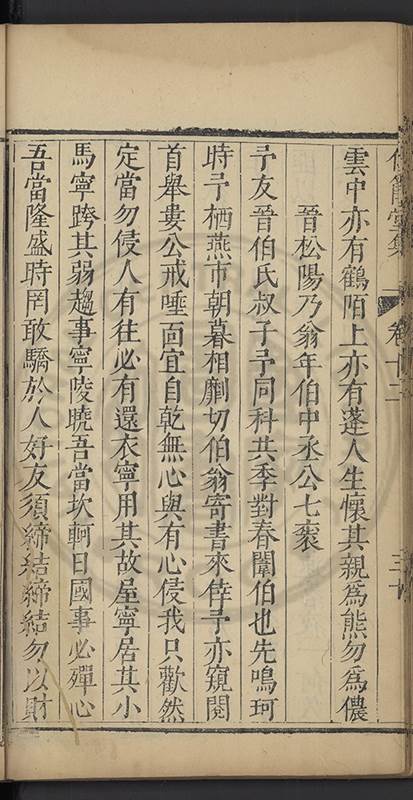 雲中亦有鶴陌上亦有蓬人生懷其親為熊勿為儂
晉松陽乃翁年伯中丞公七袠
予友晉伯氏叔子予同科其季對春闈伯也先鳴珂
時予栖燕市朝暮相劘切伯翁寄書來倖予亦窺閱
首舉婁公戒唾面宜自乾無心與有心侵我只歡然
定當勿侵人有往必有還衣寧用其故屋寧居其小
馬寧跨其弱趨事寧陵曉吾當坎軻日國事必殫心
吾當隆盛時罔敢驕於人好友須締結締結勿以財
集 卷十二